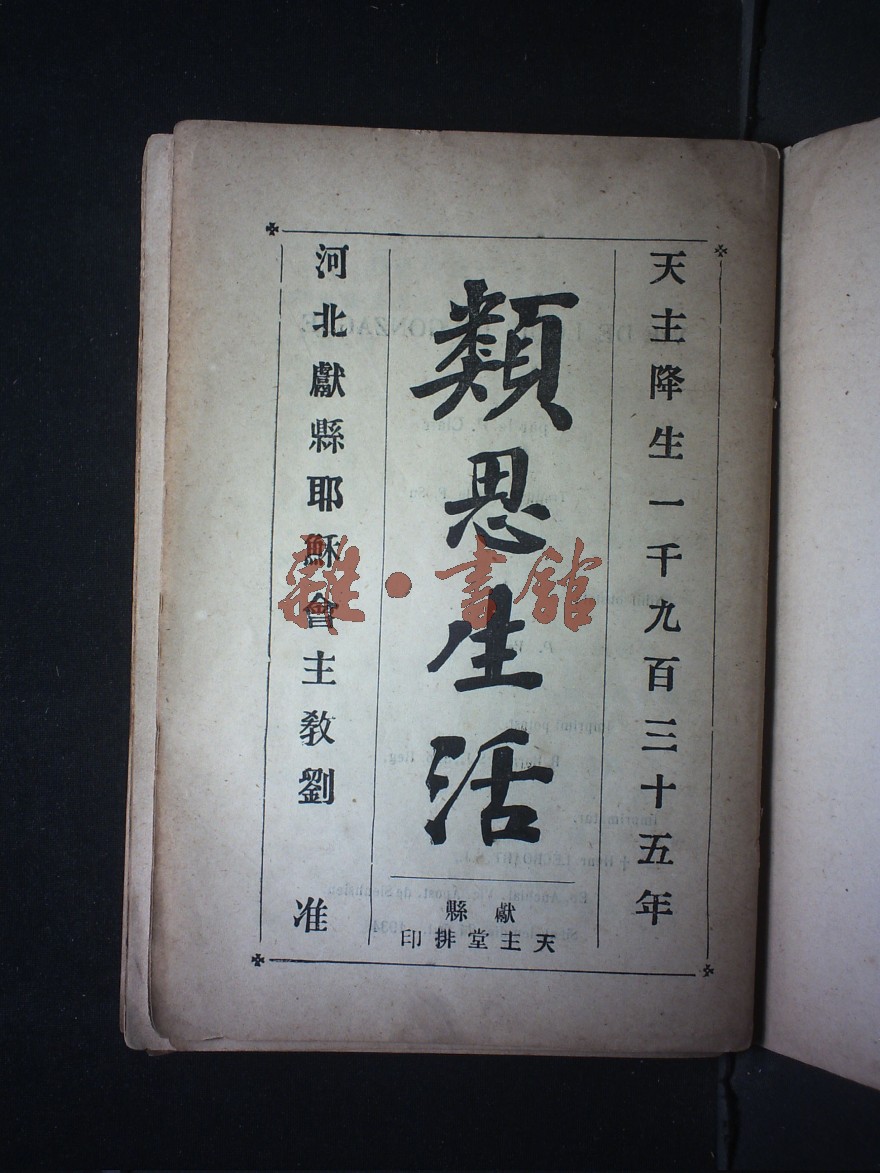 天主降生一千九百三十五年
類思生活
獻縣
天主堂排印
河北獻縣耶穌會主教劉 准
雜·書館